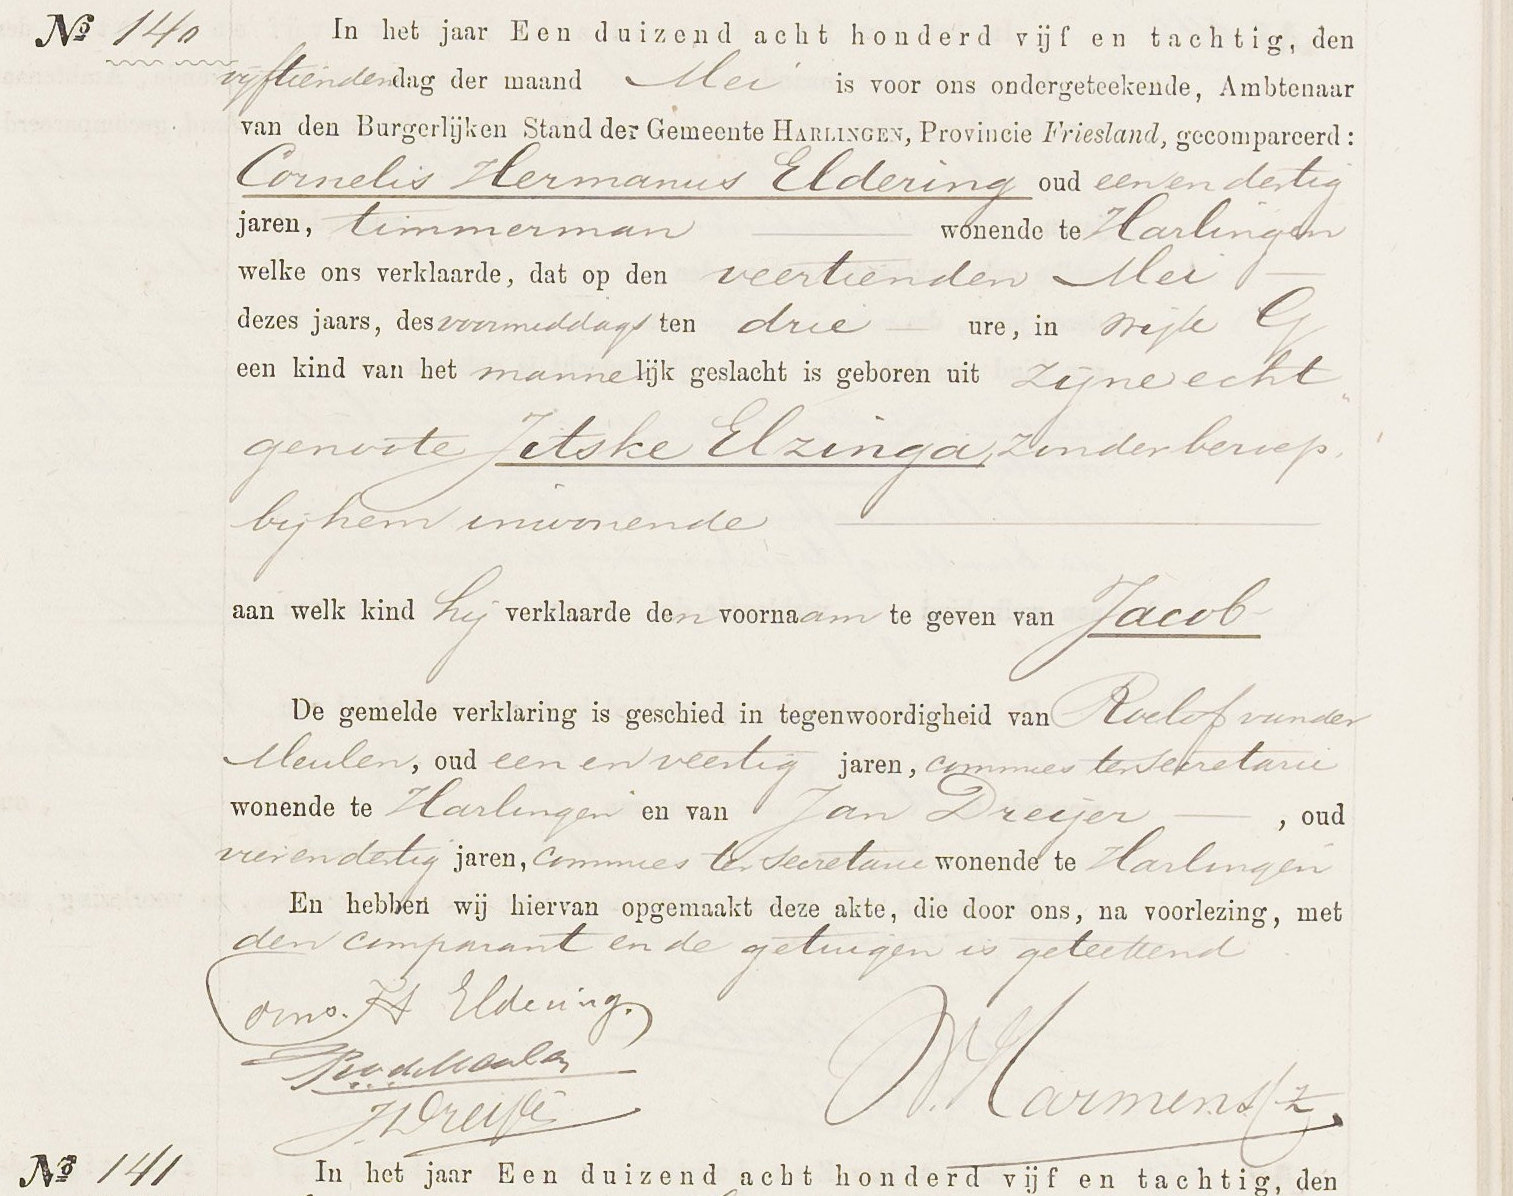 No 140
In het jaar Een duizend acht honderd vijf en tachtig, den
vijftienden dag der maand Mei is voor ons ondergeteekende, Ambtenaar
van den Burgerlijken Stand der Gemeente HARLINGEN, Provincie Friesland, gecompareerd:
Cornelis Hermanus Eldering oud een en dertig
jaren, timmerman wonende te Harlingen
welke ons verklaarde, dat op den veertienden Mei
dezes jaars, des voormiddags ten drie ure, in wijk G
een kind van het mannelijk geslacht is geboren uit zijne echt"
genoote Jetske Elzinga, zonder beroep,
bij hem inwonende
aan welk kind hij verklaarde den voornaam te geven van Jacob
De gemelde verklaring is geschied in tegenwoordigheid van Roelof van der
Meulen, oud een en veertig jaren, commies ter secretarie
wonende te Harlingen en van Jan Dreijer, oud
vier en dertig jaren, commies ter secretarie wonende te Harlingen
En hebben wij hiervan opgemaakt deze akte, die door ons, na voorlezing, met
den comparant en de getuigen is geteekend
Corns. H Eldering.
RvdMeulen
J Dreijer
Harmens Hz.
No 141
In het jaar Een duizend acht honderd vijf en tachtig, den